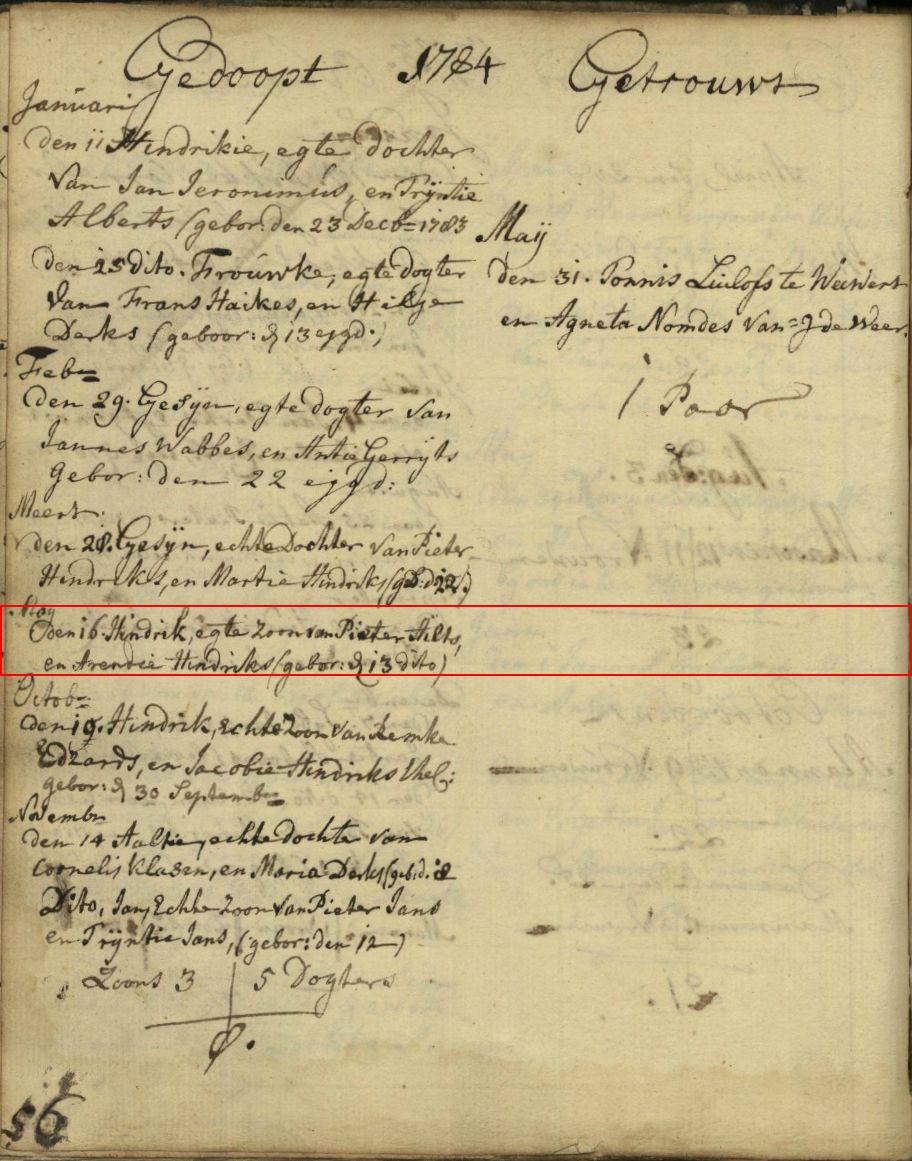 Gedoopt 1784
Januarij
den 11 Hindrikie, egte dochter
van Jan Jeronimús, en Trÿntie
Alberts (gebor: den 23 Decb= 1783
den 25 dito. Froúwke, egte dogter
van Frans Haikes, en Hilje
Derks (geboor: d 13 ejgd:)
Feb=
den 29. Gesÿn, egte dogter van
Jannes Wabbes, en Antie Gerrÿts
Gebor: den 22 ejgd:
Meert.
den 28. Gesÿn, echte Dochter van Pieter
Hindriks, en Martie Hindriks
Maÿ
den 16. Hindrik, egte zoon van Pieter Hilts,
en Arentie Hindriks (gebor: d 13 dito)
Octob=
den 19. Hindrik, Echte Zoon van Remke
Edzards, en Jacobie Hindriks
gebor: d 30 Septemb=
Novembr
den 14 Aaltie, echte dochte van
Cornelis Klasen, en Maria Derks (geb: d. 12
Dito, Jan, Echte Zoon van Pieter Jans
en Trÿntie Jans, (gebor: den 12)
Zoons 3 | 5 Dogters
56
Getrouwt
Maÿ
den 31. Ponnis Luilofs te Weiwert
en Agneta Nomdes van=
1 Paar